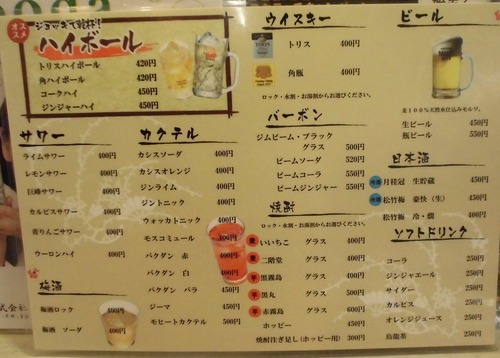 オススメ
ジョッキで乾杯!
ハイボール
トリスハイボール 420円
角ハイボール 420円
コークハイ 450円
ジンジャーハイ 450円
サワー
ライムサワー 400円
レモンサワー 400円
巨峰サワー 400円
カルピスサワー 400円
青りんごサワー 400円
ウーロンハイ 400円
梅酒
梅酒ロック 400円
梅酒 ソーダ 400円
カクテル
カシスソーダ 400円
カシスオレンジ 400円
ジンライム 400円
ジントニック 400円
ウォッカトニック 400円
モスコミュール 400円
バクダン 赤 400円
バクダン 白 400円
バクダン バラ 450円
ジーマ 450円
モヒートカクテル 500円
ウイスキー
トリス 400円
角瓶 400円
ロック・水割・お湯割からお選びください。
バーボン
ジムビーム・ブラック
グラス 500円
ビームソーダ 520円
ビームコーラ 550円
ビームジンジャー 550円
焼酎
ロック・水割・お湯割からお選びください。
麦 いいちこ グラス 400円
麦 二階堂 グラス 400円
芋 黒霧島 グラス 400円
芋 黒丸 グラス 500円
芋 赤霧島 グラス 600円
ホッピー 450円
焼酎注ぎ足し(ホッピー用) 300円
ビール
麦100%天然水仕込みモルツ。
生ビール 450円
瓶ビール 550円
日本酒
月桂冠 生貯蔵 450円
松竹梅 豪快(生) 450円
松竹梅 冷・燗 400円
ソフトドリンク
コーラ 250円
ジンジャエール 250円
サイダー 250円
カルピス 250円
オレンジジュース 250円
烏龍茶 250円